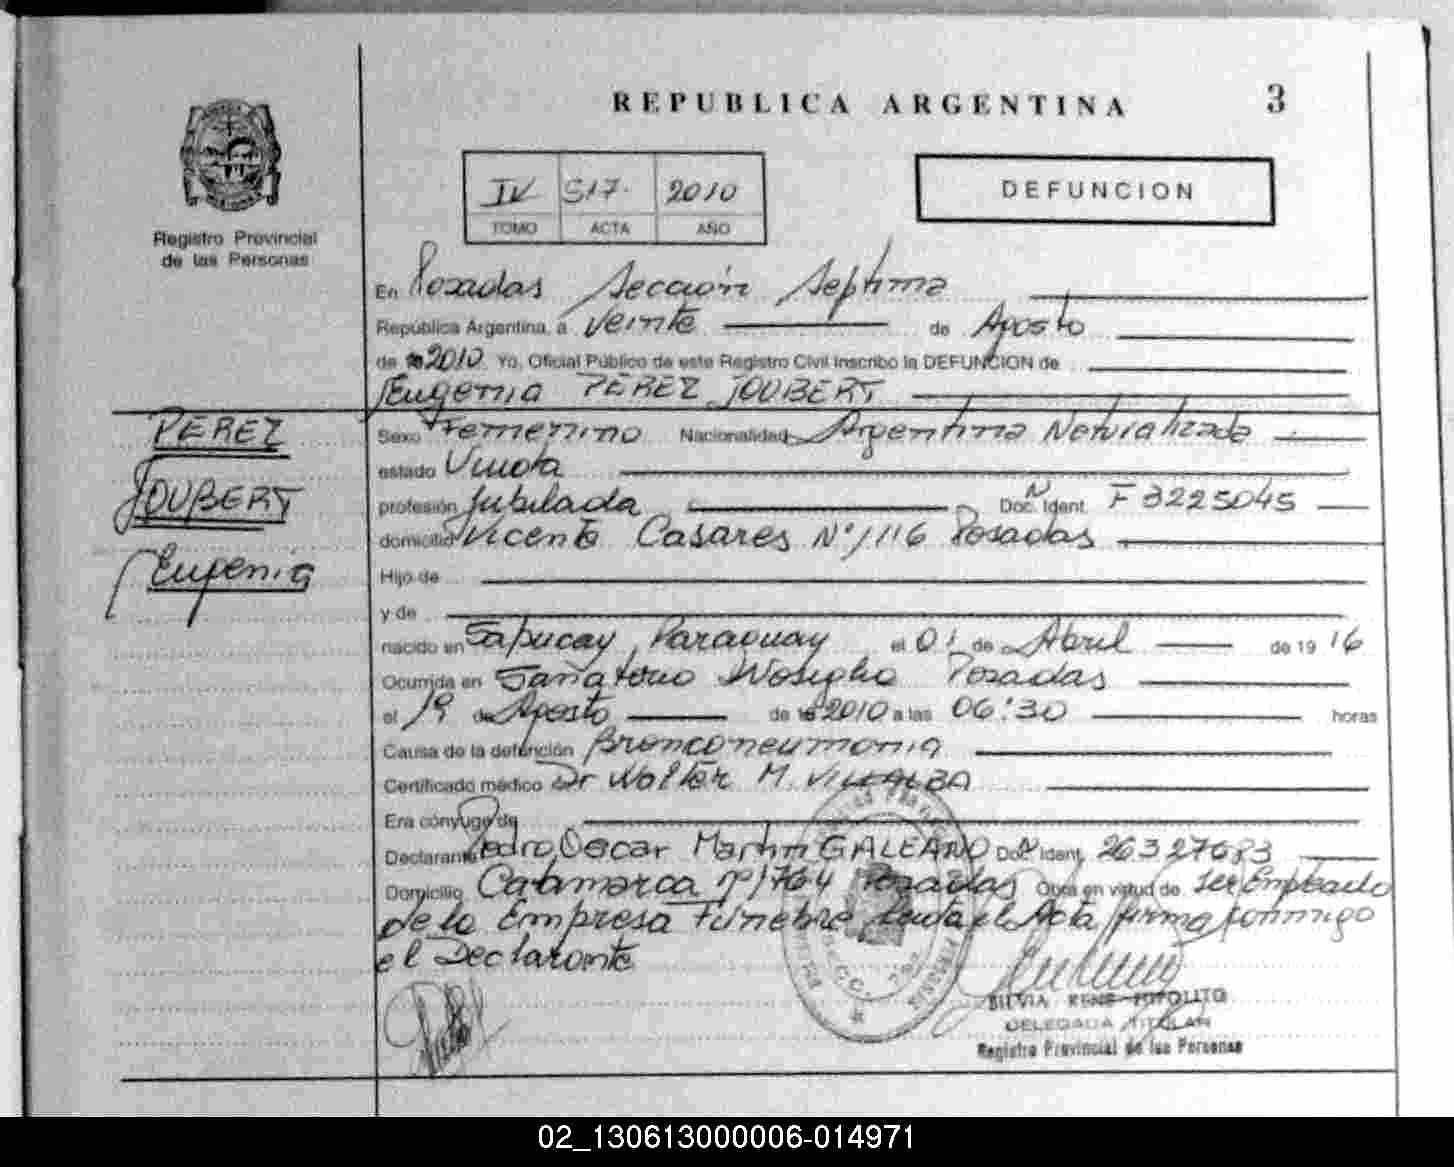 REPUBLICA ARGENTINA
3
Registro Provincial
de las Personas
IV 517 2010
TOMO ACTA AÑO
DEFUNCION
En Posadas Sección Septima
República Argentina, a veinte de Agosto
de 2010 Yo, Oficial Público de este Registro Civil inscribo la DEFUNCION de
Eugenia PEREZ JOUBERT
PEREZ
JOUBERT
Eugenia
Sexo Femenino Nacionalidad Argentina Naturalizada
estado Viuda
profesión Jubilada Doc. Ident. F 3225045
domicilio Vicente Casares Nº 1116 Posadas
Hijo de
y de
nacido en Sapucay, Paraguay el 01 de Abril de 19 16
Ocurrida en Sanatorio Posadas
el 19 de Agosto de 2010 a las 06:30 horas
Causa de la defunción Bronconeumonia
Certificado médico Dr Walter M. VILLALBA
Era cónyuge de
Declarante Pedro Oscar Martin GALEANO Doc. Ident. 26327683
Domicilio Catamarca nº 1764 Posadas Obra en virtud de Ser Empleado
de la Empresa Fúnebre, Leida el Acta firma conmigo
el Declarante
SILVIA RENE HIPOLITO
DELEGADA TITULAR
Registro Provincial de las Personas
02_130613000006-014971